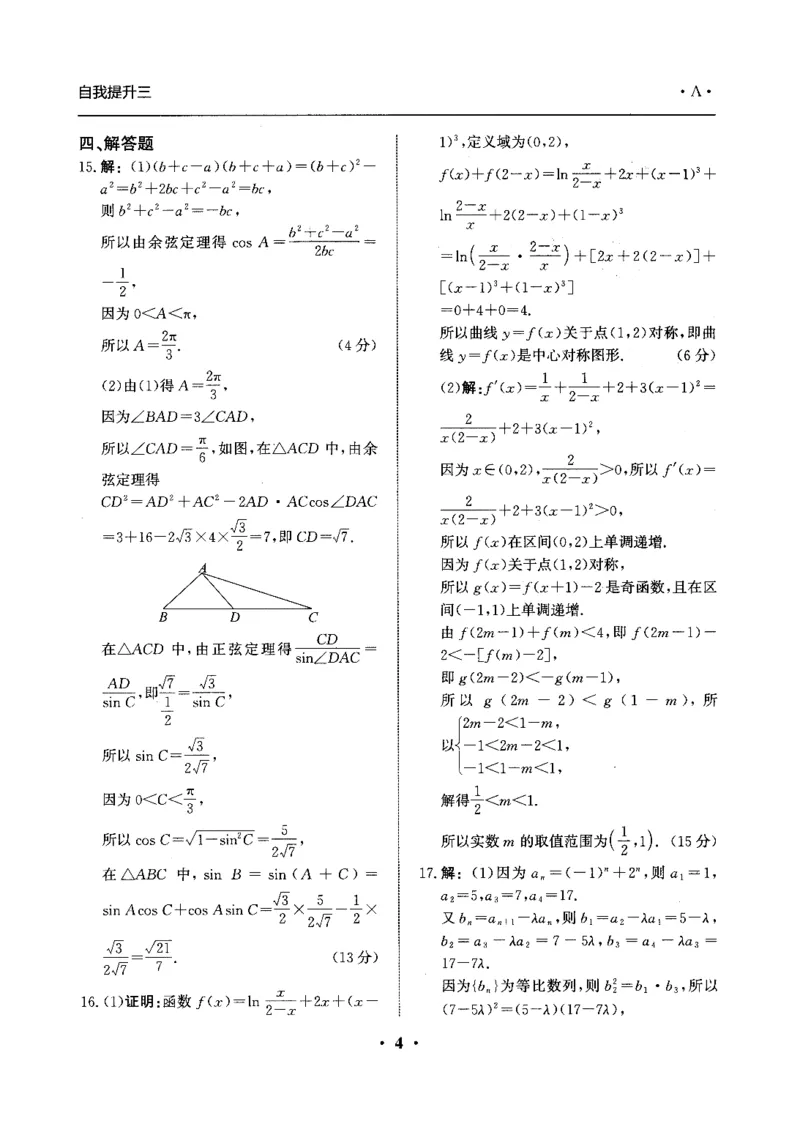 自我提升三
·A·
四、解答题
15.解：(1)(b+c−a)(b+c+a)=(b+c)²−
a²=b²+2bc+c²−a²=bc，
则b²+c²−a²=−bc，
所以由余弦定理得 cos A=\frac{b²+c²−a²}{2bc}=
−\frac{1}{2}，
因为0<A<π，
所以A=\frac{2π}{3}. (4分)
(2)由(1)得A=\frac{2π}{3}，
因为∠BAD=3∠CAD，
所以∠CAD=\frac{π}{6}，如图，在△ACD 中，由余
弦定理得
CD²=AD²+AC²−2AD·ACcos∠DAC
=3+16−2√3×4×\frac{√3}{2}=7，即CD=√7.
A
B D C
在△ACD 中，由正弦定理得\frac{CD}{sin∠DAC}=
\frac{AD}{sin C}，即\frac{√7}{\frac{1}{2}}=\frac{√3}{sin C}，
所以 sin C=\frac{√3}{2√7}，
因为0<C<\frac{π}{3}，
所以 cos C=√(1−sin²C)=\frac{5}{2√7}，
在△ABC 中，sin B = sin (A + C) =
sin Acos C+cos Asin C=\frac{√3}{2}×\frac{5}{2√7}−\frac{1}{2}×
\frac{√3}{2√7}=\frac{√21}{7}. (13分)
16.(1)证明：函数 f(x)=ln \frac{x}{2−x}+2x+(x−
1)³，定义域为(0,2)，
f(x)+f(2−x)=ln \frac{x}{2−x}+2x+(x−1)³+
ln \frac{2−x}{x}+2(2−x)+(1−x)³
=ln(\frac{x}{2−x}·\frac{2−x}{x})+[2x+2(2−x)]+
[(x−1)³+(1−x)³]
=0+4+0=4.
所以曲线y=f(x)关于点(1,2)对称，即曲
线y=f(x)是中心对称图形. (6分)
(2)解：f′(x)=\frac{1}{x}+\frac{1}{2−x}+2+3(x−1)²=
\frac{2}{x(2−x)}+2+3(x−1)²，
因为x∈(0,2)，\frac{2}{x(2−x)}>0，所以f′(x)=
\frac{2}{x(2−x)}+2+3(x−1)²>0，
所以f(x)在区间(0,2)上单调递增.
因为f(x)关于点(1,2)对称，
所以g(x)=f(x+1)−2是奇函数，且在区
间(−1,1)上单调递增.
由f(2m−1)+f(m)<4，即f(2m−1)−
2<−[f(m)−2]，
即g(2m−2)<−g(m−1)，
所以 g (2m − 2) < g (1 − m)，所
以{2m−2<1−m，
−1<2m−2<1，
−1<1−m<1，
解得\frac{1}{2}<m<1.
所以实数m的取值范围为(\frac{1}{2},1). (15分)
17.解：(1)因为aₙ=(−1)ⁿ+2ⁿ，则a₁=1，
a₂=5,a₃=7,a₄=17.
又bₙ=aₙ₊₁−λaₙ，则b₁=a₂−λa₁=5−λ，
b₂=a₃−λa₂=7−5λ，b₃=a₄−λa₃=
17−7λ.
因为{bₙ}为等比数列，则b₂²=b₁·b₃，所以
(7−5λ)²=(5−λ)(17−7λ)，
·4·